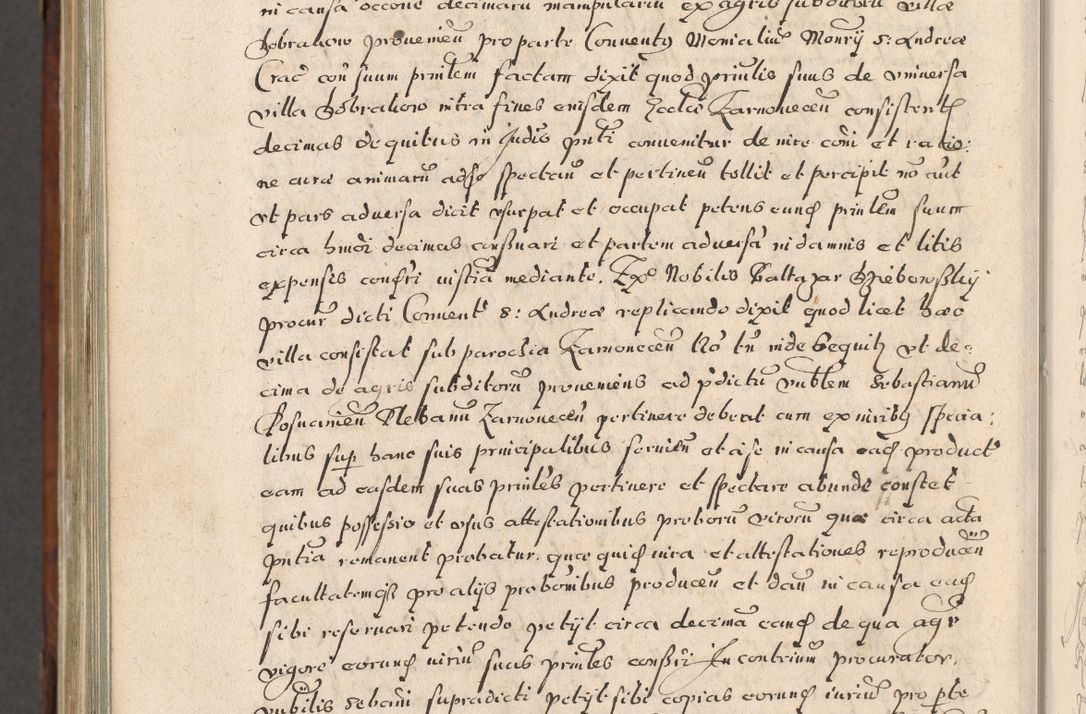 in causa occone decimaru manipulariu ex agris subditoru villæ
Zobrahow proveni͠eu pro parte Conventq Monialiu͠ Mon͠rij S: Andreæ
Crac͠ con suum prin͠lem factam dixit quod prin͠lis suus de universa
villa Zobrahow intra fines eiusdem Eccl͠iæ Zarnoveceu consistent͠
decimas de quibus in Judio pn͠ti convenitur de iure co͠ni et ratio:
ne curæ animaru͠ ad se spectau͠ et pertineu͠ tollit et percipit no͠ aut
ut pars adversa dicit usurpat et occupat petens eund prin͠lem suum
circa hm͠oi decimas cons͠uari et partem adversa͠ in damnis et litis
expensis con͠fri iustia͠ mediante. Ex͠o Nobilis Baltazar
procur͠ dicti Convent͠ S: Andreæ replicando dixit quod licet hæc
villa consistat sub parochia Zarnoveceu No͠ tn͠ inde sequit͠ ut de:
cima de agris subditoru͠ proveniens ad p͠dictu͠ ven͠blem Sebastianu͠
Plebanu͠ Zarnoveceu͠ pertinere debeat cum ex iuribq specia:
libus sup͠ hanc suis principalibus servieu͠ et ipse in causa ead product͠
eam ad easdem suas prin͠les pertinere et spectare abunde constet
quibus possessio et usus attestationibus proboru͠ viroru͠ quæ circa acta
pn͠tia remanent probatur. quæ quid iura et attestationes reproduceu͠
facultatemq3 pro alijs prob͠onibus produceu͠ et dau͠ in causa ead
sibi reservari petendo petijt circa decima͠ eand de qua agr͠
vigore eorund iuriu͠ suas prin͠les cons͠ri In contriu͠m procurator.
ven͠bilis Seb͠ani supradicti petijt sibi copias eorund iuriu͠ pro p͠te